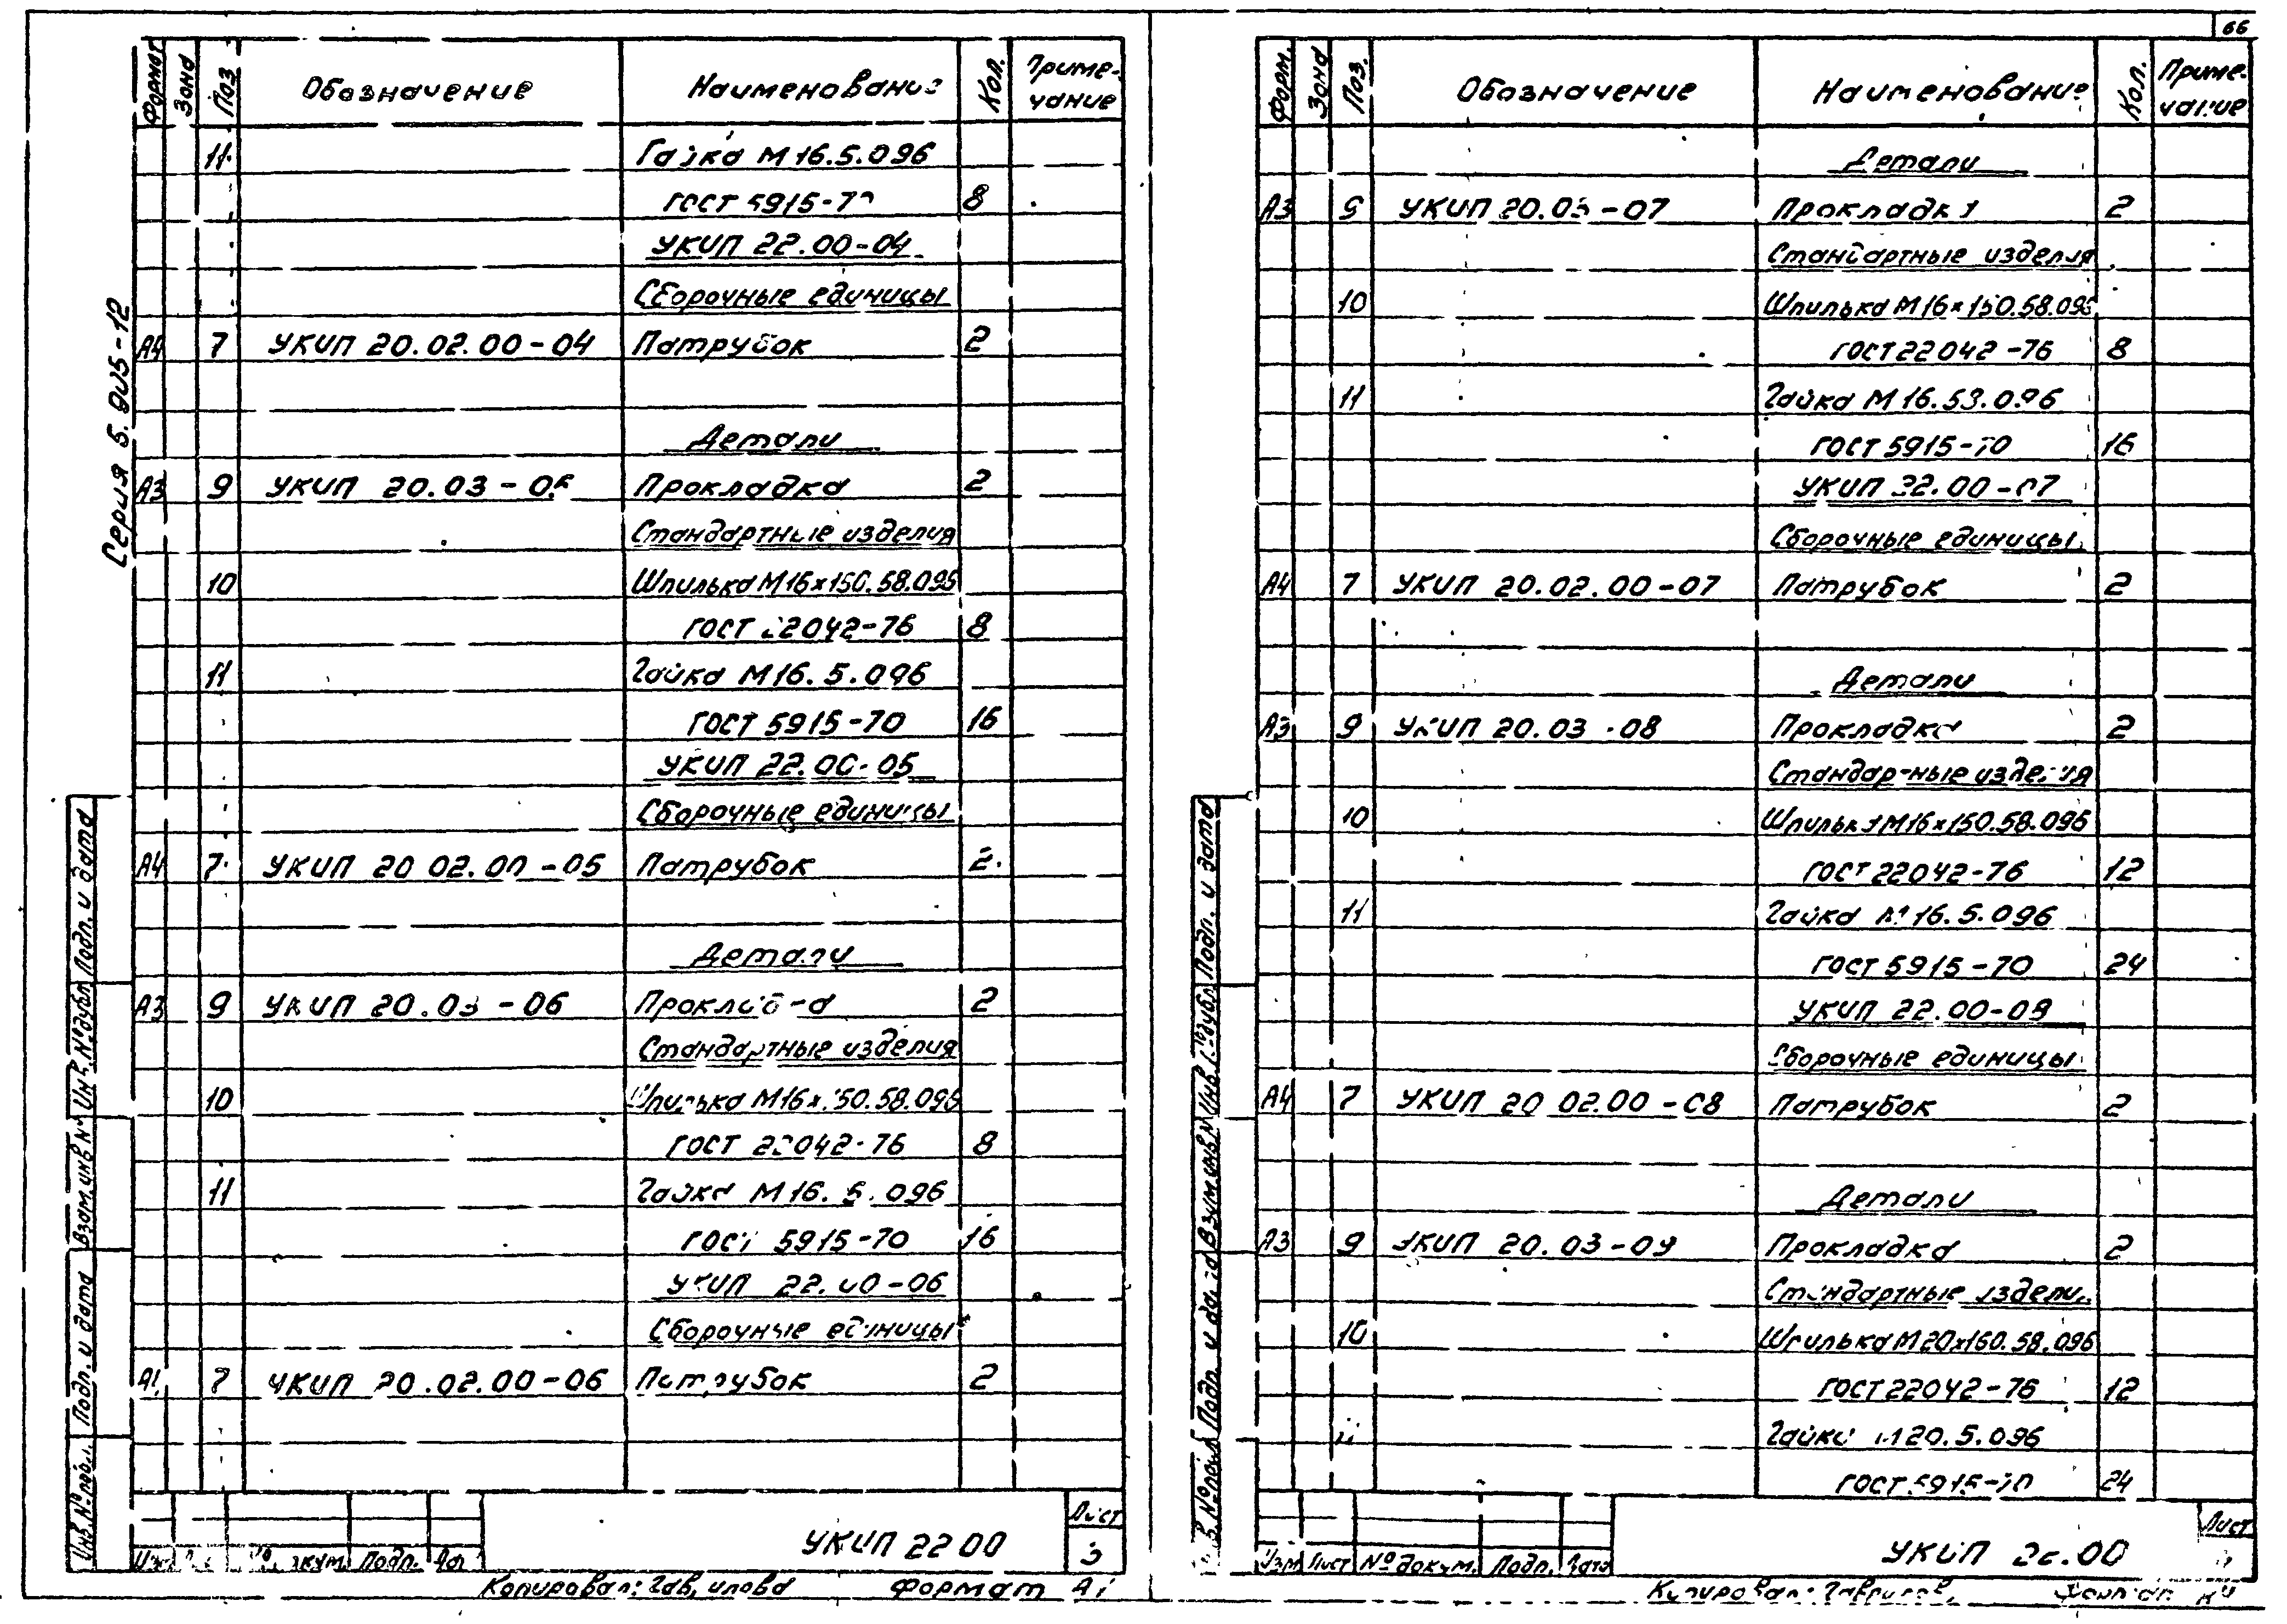 66
Серия 5.905-12
Формат Зона Поз. Обозначение Наименование Кол. Приме-
чание
11 Гайка М16.5.096
ГОСТ 5915-70 8
УКИП 22.00-04
Сборочные единицы
А4 7 УКИП 20.02.00-04 Патрубок 2
Детали
А3 9 УКИП 20.03-05 Прокладка 2
Стандартные изделия
10 Шпилька М16х150.58.096
ГОСТ 22042-76 8
11 Гайка М16.5.096
ГОСТ 5915-70 16
УКИП 22.00-05
Сборочные единицы
А4 7 УКИП 20 02.00-05 Патрубок 2
Детали
А3 9 УКИП 20.03-06 Прокладка 2
Стандартные изделия
10 Шпилька М16х150.58.096
ГОСТ 22042-76 8
11 Гайка М16.5.096
ГОСТ 5915-70 16
УКИП 22.00-06
Сборочные единицы
7 УКИП 20.02.00-06 Патрубок 2
Инв. № подл. Подп. и дата Взам. инв № Инв. № дубл Подп. и дата
Изм № докум. Подп. Дат
УКИП 22 00
Лист
3
Копировал: Гаврилова Формат
Форм. Зона Поз. Обозначение Наименование Кол. Приме-
чание
Детали
А3 9 УКИП 20.03-07 Прокладка 2
Стандартные изделия
10 Шпилька М16х150.58.096
ГОСТ 22042-76 8
11 Гайка М16.53.096
ГОСТ 5915-70 16
УКИП 22.00-07
Сборочные единицы
А4 7 УКИП 20.02.00-07 Патрубок 2
Детали
А3 9 УКИП 20.03-08 Прокладка 2
Стандартные изделия
10 Шпилька М16х150.58.096
ГОСТ 22042-76 12
11 Гайка М16.5.096
ГОСТ 5915-70 24
УКИП 22.00-08
Сборочные единицы
А4 7 УКИП 20 02.00-08 Патрубок 2
Детали
А3 9 УКИП 20.03-09 Прокладка 2
Стандартные изделия
10 Шпилька М20х160.58.096
ГОСТ 22042-76 12
11 Гайка М20.5.096
ГОСТ 5915-70 24
№ подл Подп. и дата Взам инв № Инв. № дубл Подп. и дата
Изм Лист № докум. Подп. Дата
УКИП 22.00
Лист
Копировал: Гаврилов Формат А4